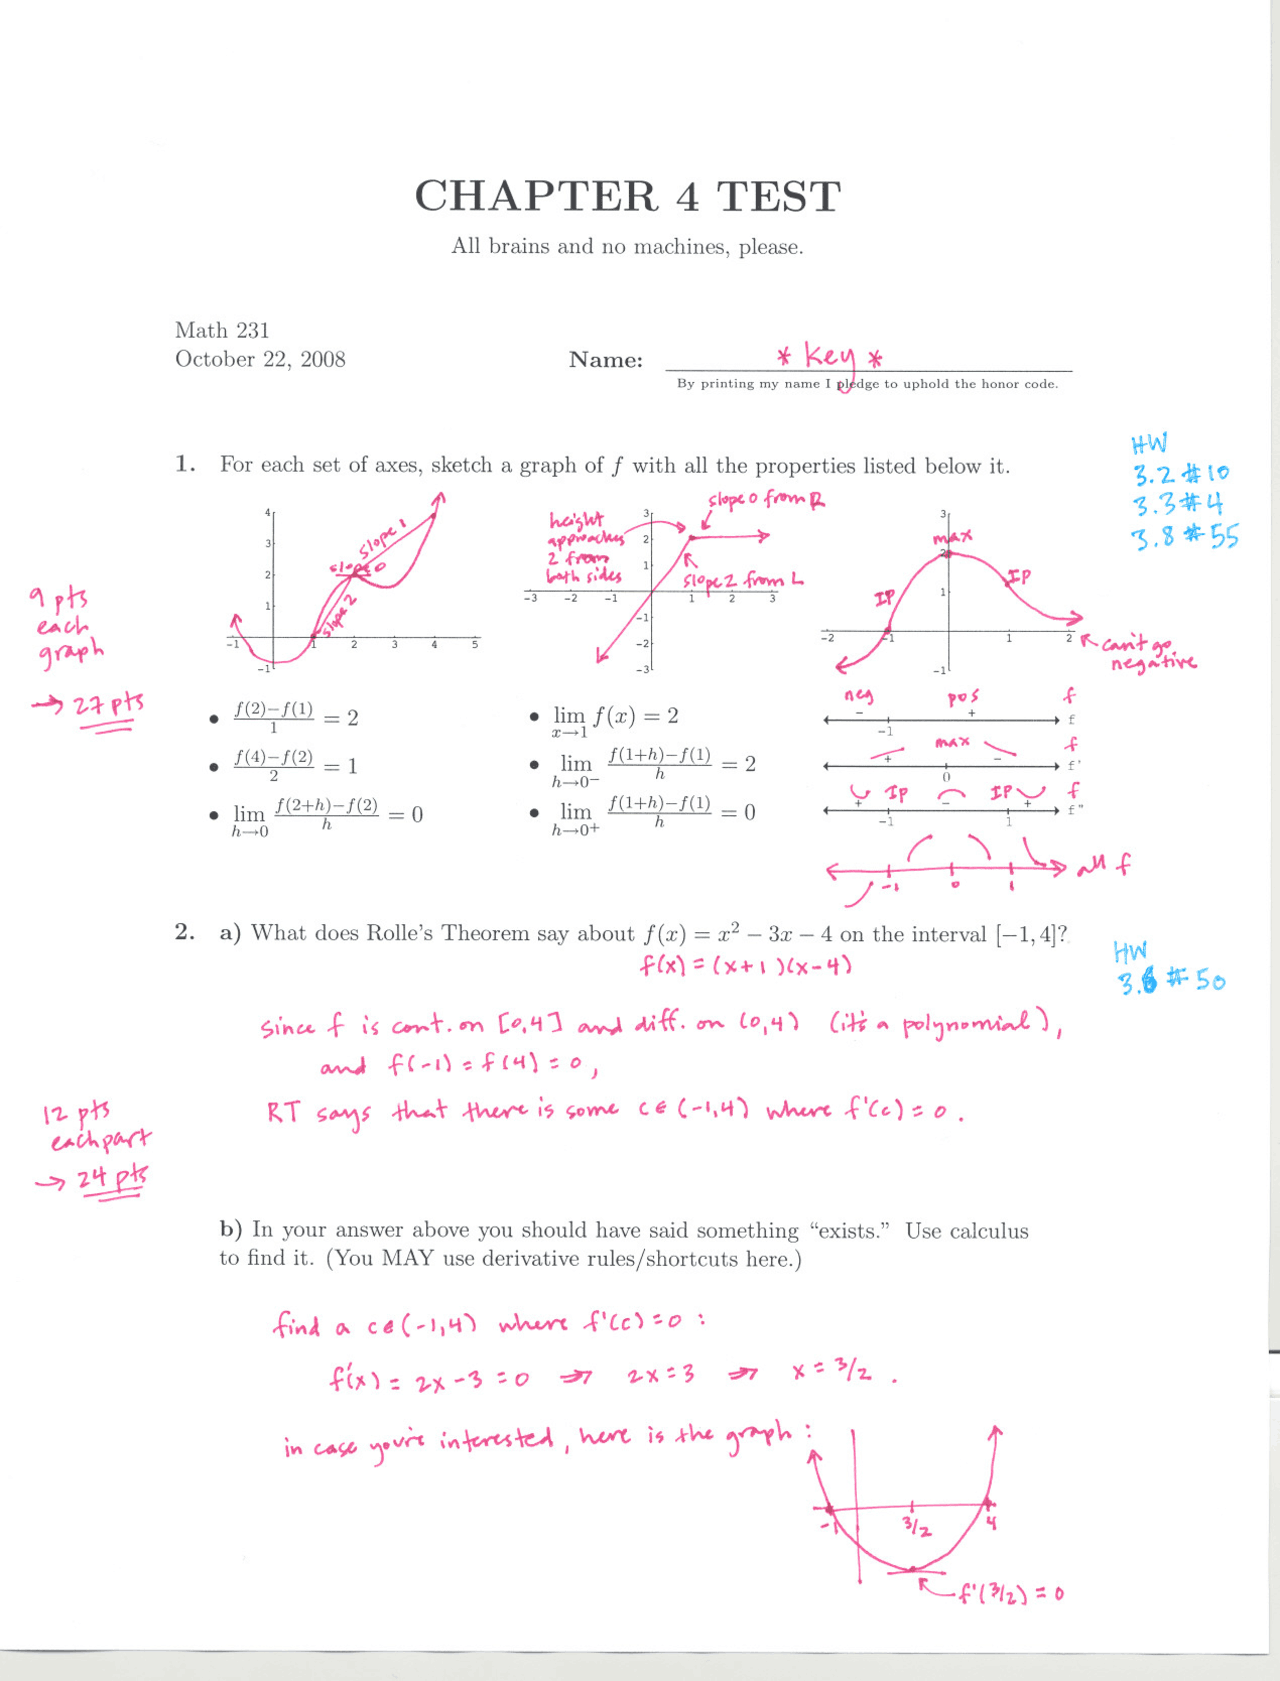 CHAPTER 4 TEST
All brains and no machines, please.
Math 231
October 22, 2008
Name: * Key *
By printing my name I pledge to uphold the honor code.
HW
3.2 #10
3.3 #4
3.8 #55
1. For each set of axes, sketch a graph of f with all the properties listed below it.
9 pts
each
graph
→ 27 pts
4
3
2
1
-1
-1
1
2
3
4
5
slope 1
slope 0
slope 2
height
approaches
2 from
both sides
slope 0 from R
slope 2 from L
3
2
1
-1
-2
-3
-3
-2
-1
1
2
3
3
2
1
-1
-2
-1
1
2
max
IP
IP
can't go
negative
• f(2)−f(1)/1 = 2
• f(4)−f(2)/2 = 1
• lim h→0 f(2+h)−f(2)/h = 0
• lim x→1 f(x) = 2
• lim h→0⁻ f(1+h)−f(1)/h = 2
• lim h→0⁺ f(1+h)−f(1)/h = 0
neg pos f
− + f
-1
max f
+ − f'
0
IP IP f
+ − + f"
-1 1
all f
-1 0 1
2. a) What does Rolle's Theorem say about f(x) = x² − 3x − 4 on the interval [−1, 4]?
f(x) = (x+1)(x-4)
HW
3.6 #50
since f is cont. on [0,4] and diff. on (0,4) (it's a polynomial),
and f(-1) = f(4) = 0,
RT says that there is some c∈(-1,4) where f'(c) = 0.
12 pts
each part
→ 24 pts
b) In your answer above you should have said something “exists.” Use calculus
to find it. (You MAY use derivative rules/shortcuts here.)
find a c∈(-1,4) where f'(c)=0 :
f'(x) = 2x-3 = 0 ⇒ 2x=3 ⇒ x = 3/2 .
in case you're interested, here is the graph :
-1
3/2
4
f'(3/2) = 0